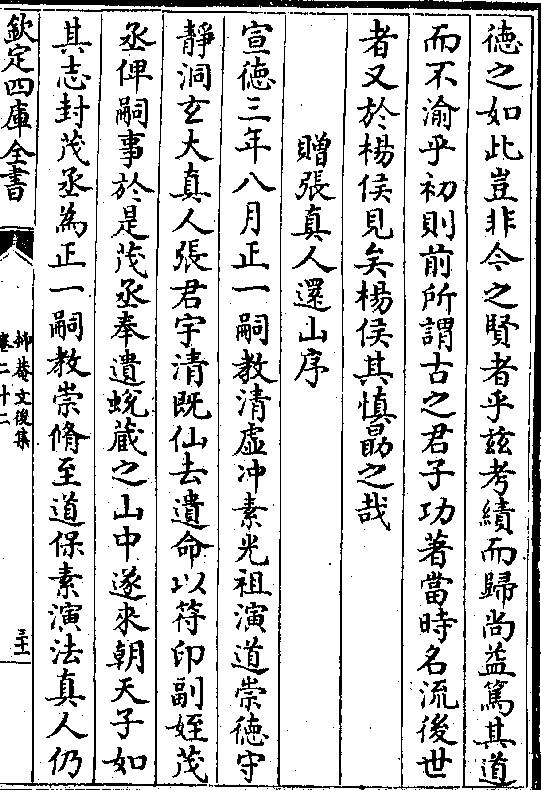 德之如此豈非今之賢者乎兹考績而歸尚益篤其道
而不渝乎初則前所謂古之君子功著當時名流後世
者又於楊侯見矣楊侯其慎勗之哉
贈張真人還山序
宣德三年八月正一嗣教清虚冲素光祖演道崇德守
靜洞玄大真人張君宇清既仙去遺命以符印副姪茂
丞俾嗣事於是茂丞奉遺蛻藏之山中遂來朝天子如
其志封茂丞為正一嗣教崇脩至道保素演法真人仍
欽定四庫全書
抑菴文後集
卷二十二
三十一